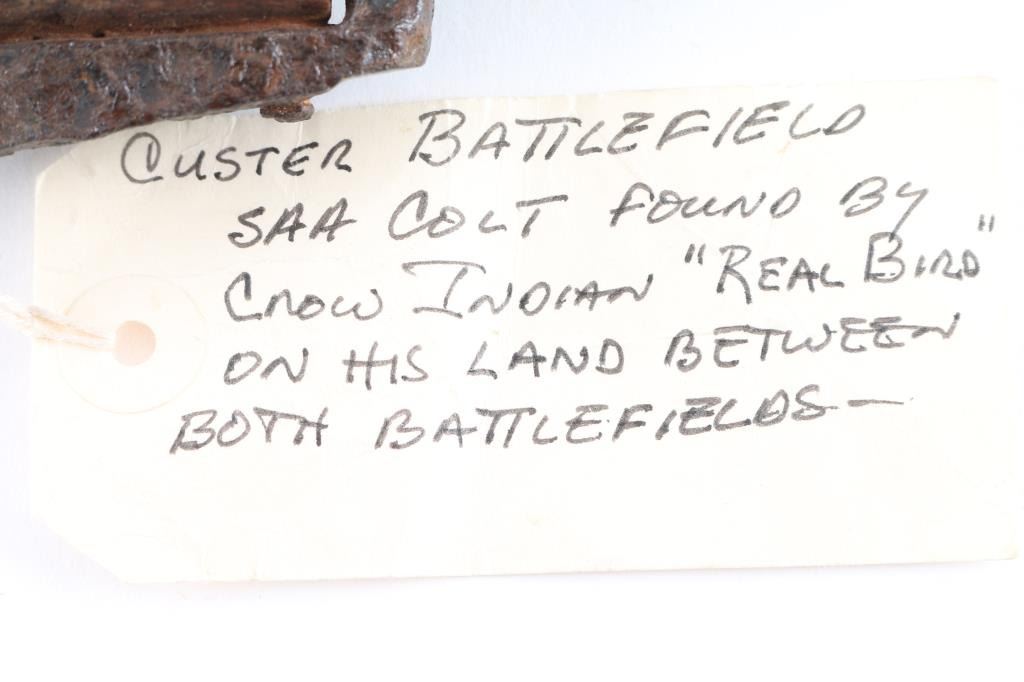 CUSTER BATTLEFIELD
SAA COLT FOUND BY
CROW INDIAN "REAL BIRD"
ON HIS LAND BETWEEN
BOTH BATTLEFIELDS—